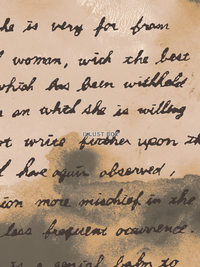 he is very far from
woman, with the best
which has been withheld
an which she is willing
ot write further upon th
have again observed,
ion more mischief in the
less frequent occurrence.
is a genial balm to